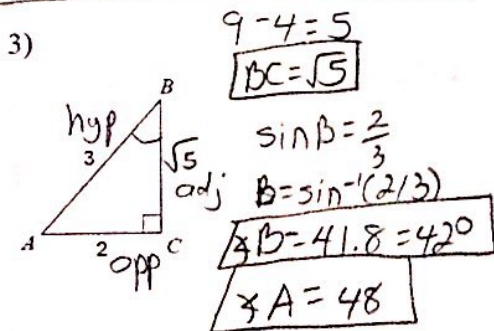 3)
9 - 4 = 5
BC = √5
B
hyp
3
√5
adj
A
2
C
opp
sin B = 2/3
B = sin⁻¹(2/3)
∡B = 41.8 = 42°
∡A = 48